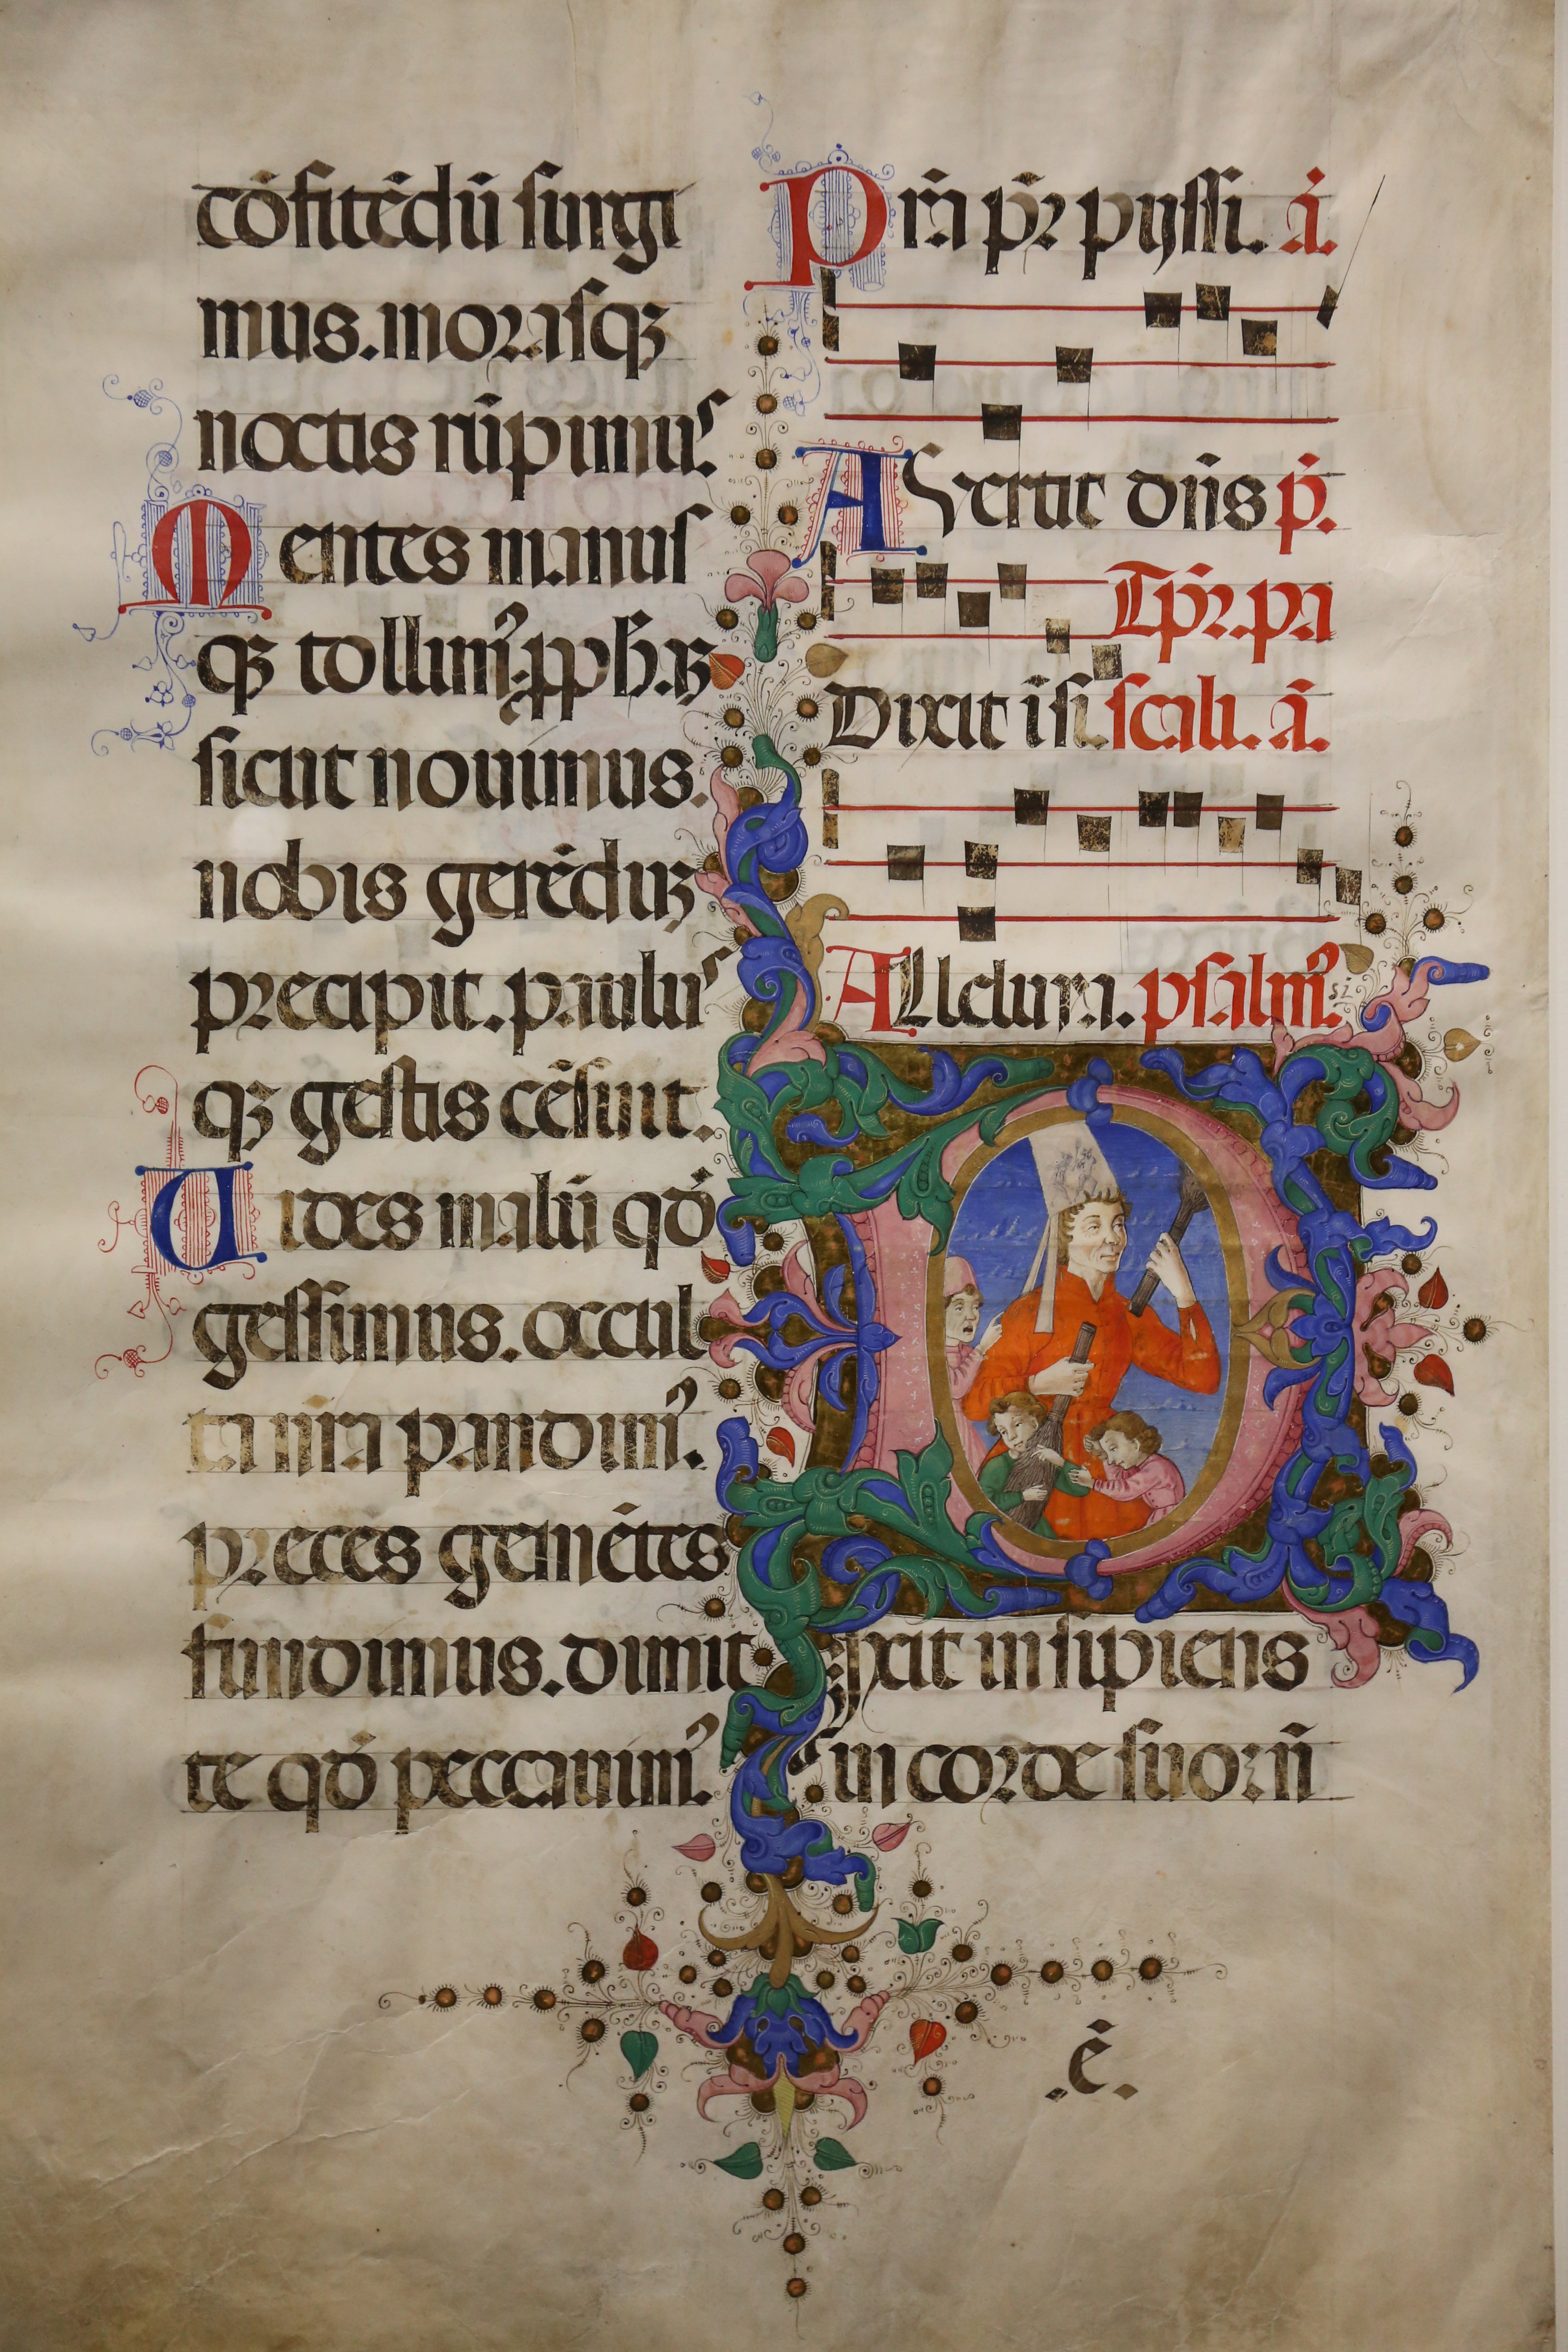 cōfitēdū surgi
mus. morasqꝫ
noctis rūpimus.
Mentes manus
qꝫ tollimꝰ. ꝓpħ.ꝫ
sicut nouimus.
nobis gerēdūꝫ
precipit. paulus
qꝫ gestis cēsuit.
Uides malū qd̄
gessimus. occul
ta nr̄a pandimꝰ.
preces gemētes
fundimus. dimit
te qd̄ peccauimꝰ.
Pr̄a pr̄ pyssi. ā.
Auertit dn̄s p̄.
Tpr̄. pa
Dixit isi. scali. ā.
Alleluya. psalmꝰ.
Dixit insipiens
in corde suo: nō
.ē.